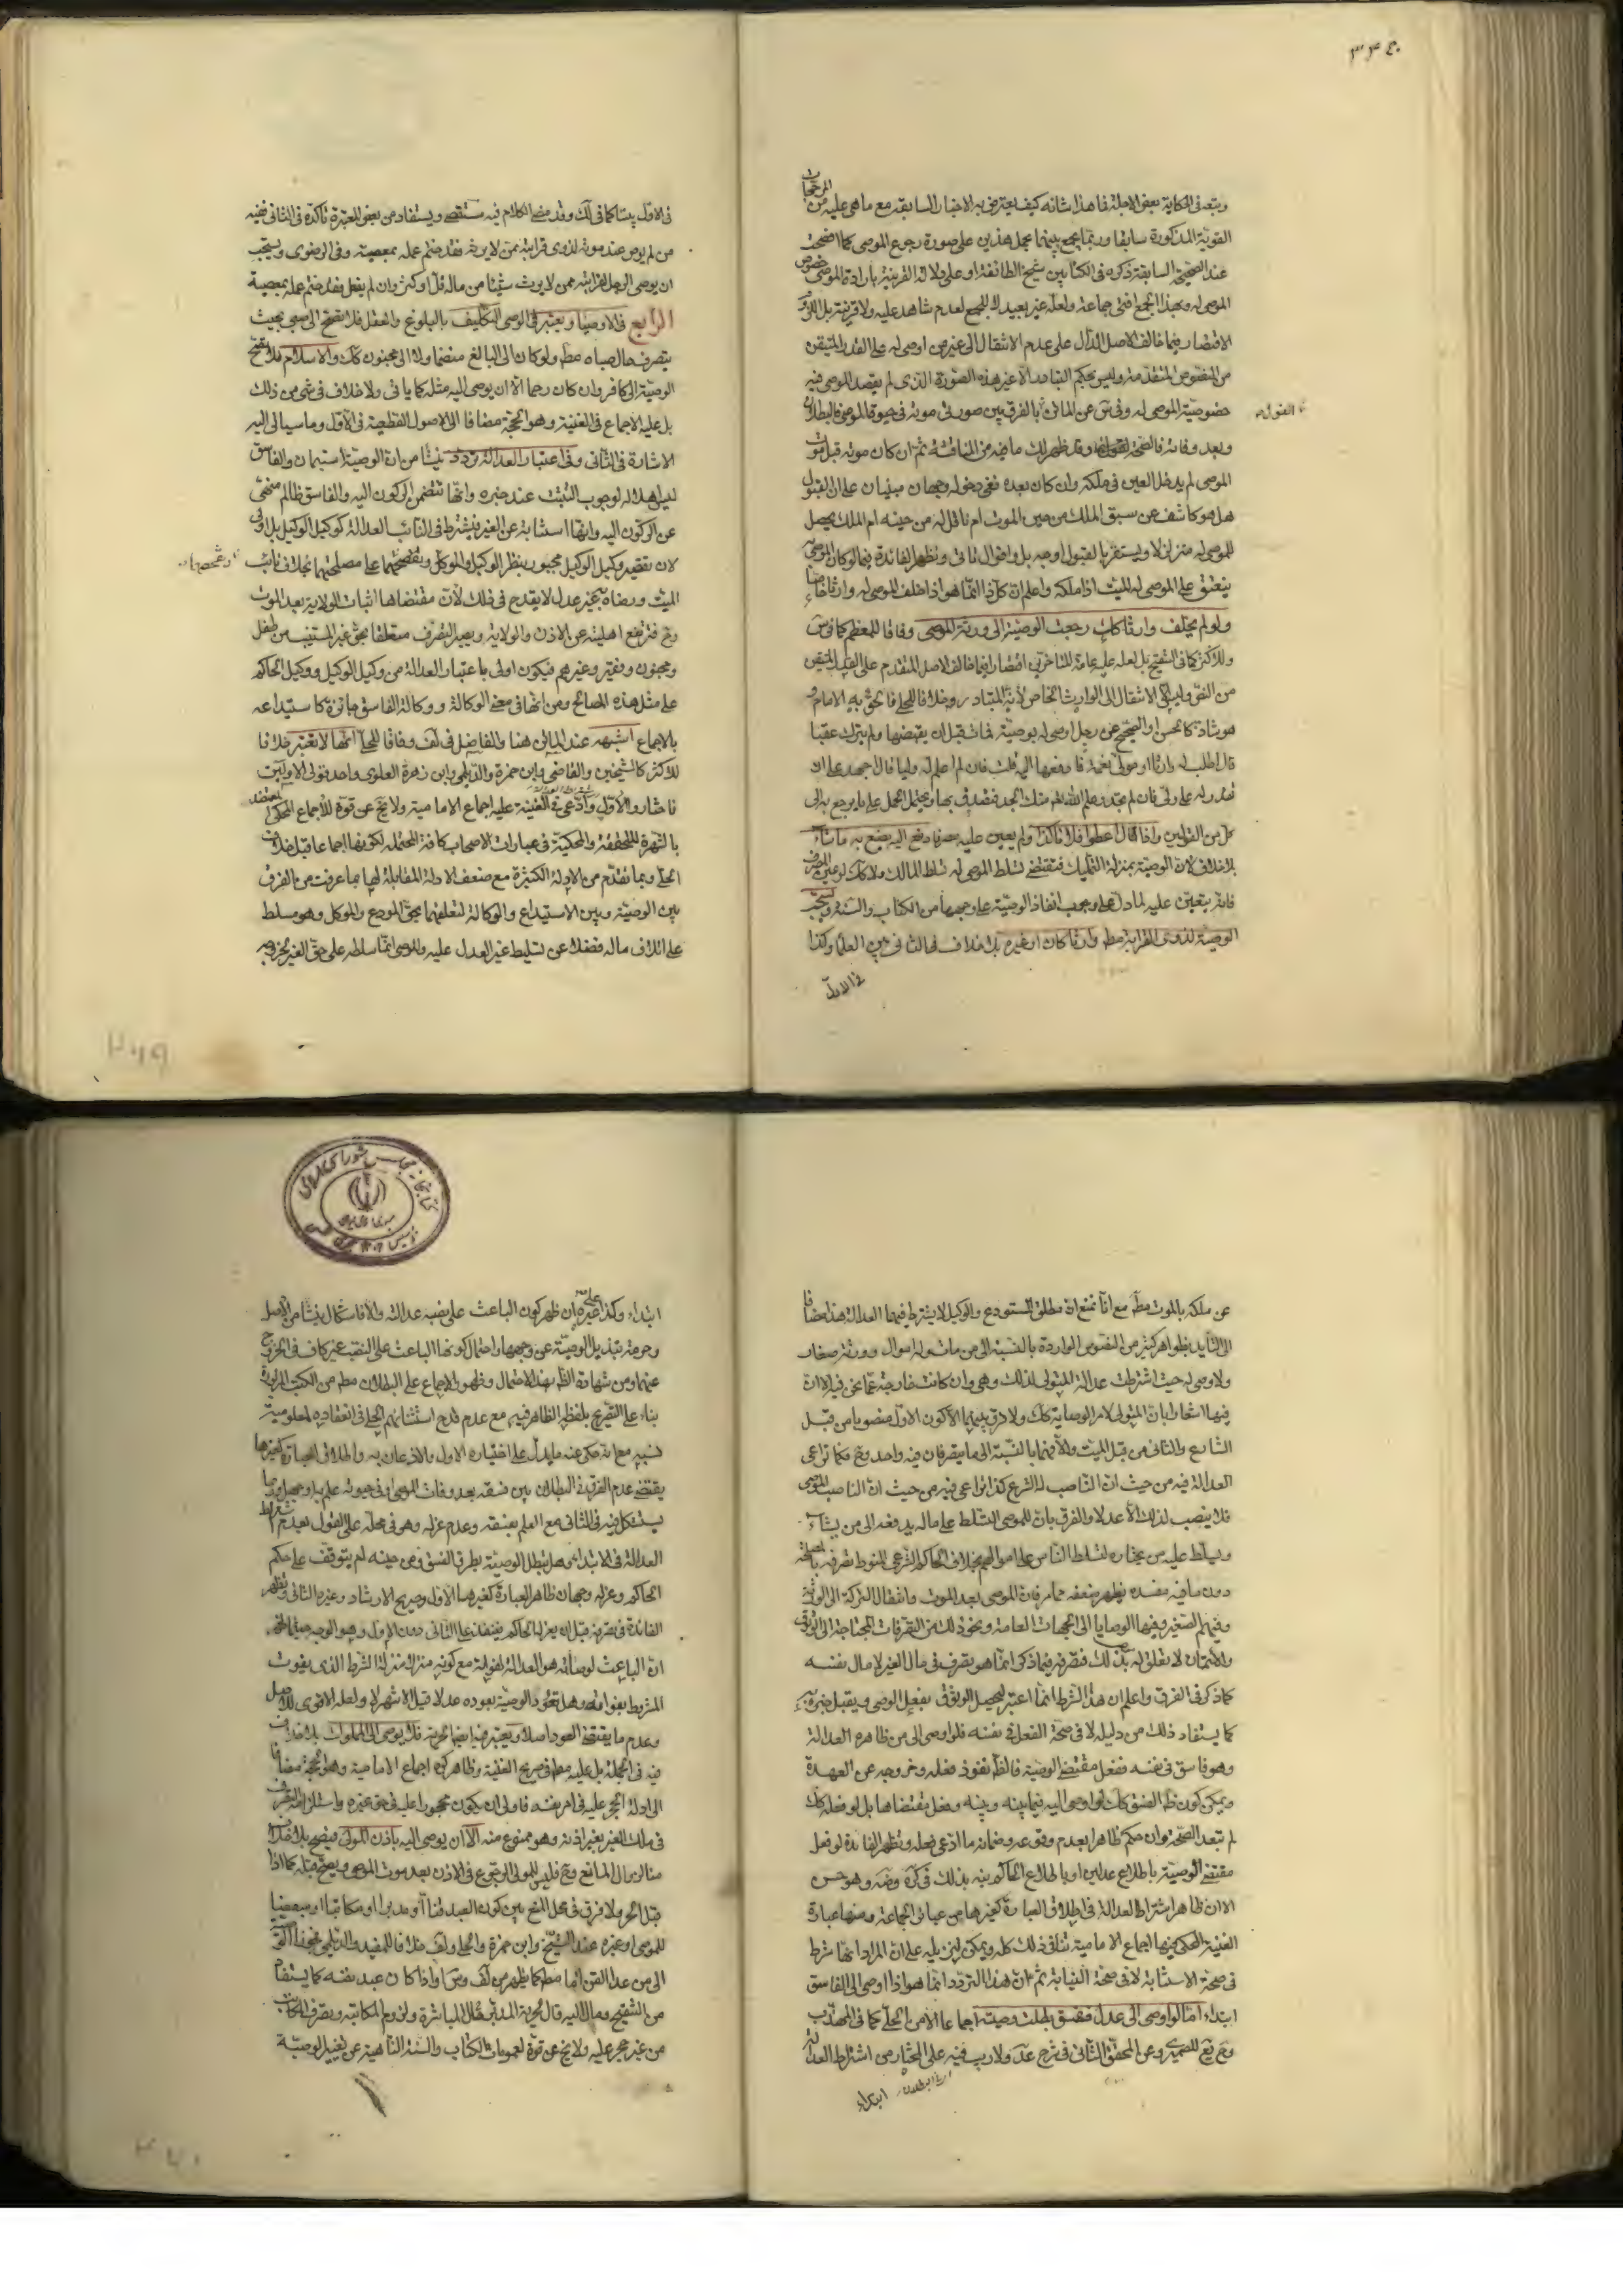 ۳۴۵
ويتبعه في الحكاية بعض الاجلة فما هذا شانه كيف يعترض به الاخبار السابقة مع ما هي عليه من المرجحات
القوية المذكورة سابقا وربما يجمع بينهما بحمل هذين على صورة رجوع الموصى كما اتضحت
عند الصحيحة السابقة ذكره في الكتابين شيخ الطائفة او على دلالة القرينة بارادة الموصى خصوص
الموصى له وبهذا الجمع افتى جماعة ولعله غير بعيد لا للجمع لعدم شاهد عليه ولا قرينة بل للزوم
الاقتصار فيما خالف الاصل الدال على عدم الانتقال الى غير من اوصى له على القدر المتيقن
من النصوص المتقدمة وليس بحكم التبادر الا غير هذه الصورة الذي لم يقصد الموصى فيه
خصوصية الموصى له وفي عن الماتن بالفرق بين صورتي موته في حيوة الموصى فالبطلان
القول
وبعد وفاته فالصحة وقد ظهر لك ما فيه من المناقشة ثم ان كان موته قبل موت
الموصى لم يدخل العين في ملكه وان كان بعده ففي دخوله وجهان مبنيان على ان القبول
هل هو كاشف عن سبق الملك من حين الموت ام ناقل له من حينه ام الملك يحصل
للموصى له متزلزلا ويستقر بالقبول اوجه بل واقوال ثاني وتظهر الفائدة فيما لو كان الموصى به
ينعتق على الموصى له الميت اذا ملكه واعلم ان كل ذا انما هو اذا خلف الموصى له وارثا خاصا
ولو لم يخلف وارثا كان رجعت الوصية الى ورثة الموصى وفاقا للمعظم كما في
وللاكثر كما في التنقيح بل لعله عليه عامة المتاخرين اقتصارا فيما خالف الاصل المتقدم على القدر المتيقن
من النص وليس الا الانتقال الى الوارث الخاص لانه المتبادر وخلافا للحلي فالحق به الامام و
هو شاذ كالحسن او الصحيح عن رجل اوصى له بوصية فمات قبل ان يقبضها ولم يترك عقبا
قال اطلب له وارثا او مولى نعمة فادفعها اليه قلت فان لم اعلم له وليا قال اجهد على ان
تقدر له على ولي فان لم تجد وعلم الله تعالى منك الجد فتصدق بها ويحتمل الحمل على ما يرجع به الى
كل من القولين واذا قال اعطوا فلانا كذا ولم يعين عليه مصرفا دفع اليه يصنع به ما شاء
بلا خلاف لان الوصية بمنزلة التمليك فتقتضي تسلط الموصى له تسلط المالك ولا كك لو عين المصرف
فانه يتعين عليه لما دل على وجوب انفاذ الوصية على وجهها من الكتاب والسنة ويستحب
الوصية لذوي القرابة مطلقا وارثا كان او غيره بلا خلاف في الثاني بين العلماء وكذا
في الاول
في الاول بيننا كما في لك وقد مضى الكلام فيه مستقصى ويستفاد من بعض المعتبرة تاكده في الثاني ففيه
من لم يوص عند موته لذوي قرابته ممن لا يرثه فقد ختم عمله بمعصية وفي الرضوي ويستحب
ان يوصى الرجل لقرابته ممن لا يرث شيئا من ماله قل او كثر وان لم يفعل فقد ختم عمله بمعصية
الرابع في الاوصياء ويعتبر في الوصي التكليف بالبلوغ والعقل فلا تصح الى صبي بحيث
يتصرف حال صباه مطلقا ولو كان الى البالغ منضما ولا الى مجنون كك والاسلام فلا تصح
الوصية الى كافر وان كان رحما الا ان يوصى اليه مثله كما ياتى ولا خلاف في شئ من ذلك
بل عليه الاجماع في الغنية وهو الحجة مضافا الى الاصول القطعية في الاول وما سيأتى اليه
الاشارة في الثاني وفي اعتبار العدالة تردد ينشأ من ان الوصية استيمان والفاسق
ليس اهلا له لوجوب التثبت عند خبره وانها تتضمن الركون اليه والفاسق ظالم منهي
عن الركون اليه وانها استنابة عن الغير فيشترط في النائب العدالة كوكيل الوكيل بل اولى
لان تقصير وكيل الوكيل مجبور بنظر الوكيل والموكل وتفحصهما على مصلحتهما بخلاف نائب
وتفحصهما
الميت ورضاه بغير عدل لا يقدح في ذلك لان مقتضاها اثبات الولاية بعد الموت
وح فترتفع اهليته عن الاذن والولاية ويصير التصرف متعلقا بحق غير المستنيب من طفل
ومجنون وفقير وغيرهم فيكون اولى باعتبار العدالة من وكيل الوكيل ووكيل الحاكم
على مثل هذه المصالح ومن انها في معنى الوكالة ووكالة الفاسق جائزة كاستيداعه
بالاجماع اشبهه عند الماتن هنا والفاضل في لف وفاقا للحلي انها لا تعتبر خلافا
للاكثر كالشيخين والقاضي وابن حمزة والديلمي وابن زهرة العلوي واحد قولي الاولين
فاختاروا الاول وادعى في الغنية عليه اجماع الامامية ولا يخ عن قوة للاجماع المحكي المعتضد
بالشهرة المحققة والمحكية في عبارات الاصحاب كافة المحتملة لكونها اجماعا قبل خلاف
الحلي وبما تقدم من الادلة الكثيرة مع ضعف الادلة المقابلة لها بما عرفت من الفرق
بين الوصية وبين الاستيداع والوكالة لتعلقهما بحق المودع والموكل وهو مسلط
على اتلاف ماله فضلا عن تسليط غير العدل عليه والموصى انما سلطه على حق الغير لخروجه
عن ملكه بالموت مطلقا مع انا نمنع ان مطلق المستودع والوكيل لا يشترط فيهما العدالة هذا مضافا
الى التأيد بظواهر كثير من النصوص الواردة بالنسبة الى من مات وله اموال وورثة صغار
ولا وصي له حيث اشترطت عدالة المتولي لذلك وهي وان كانت خارجة عما نحن فيه الا ان
فيها اشعارا بان المتولي لامر الوصاية كك ولا فرق بينهما الا كون الاول منصوبا من قبل
الشارع والثاني من قبل الميت والا فهما بالنسبة الى ما يتصرفان فيه واحد وح فكما تراعى
العدالة فيه من حيث ان الناصب له الشرع كذا تراعى فيه من حيث ان الناصب الموصى
فلا ينصب لذلك الا عدلا والفرق بان للموصى التسلط على ماله يدفعه الى من يشاء
ويسلط عليه من يختاره لتسلط الناس على اموالهم بخلاف الحاكم الشرعي المنوط تصرفه بالمصلحة
دون ما فيه مفسدة يظهر ضعفه مما مر فان الموصى بعد الموت وانتقال التركة الى الورثة
وفيهم الصغير وفيها الوصايا الى الجهات العامة ونحو ذلك من التصرفات المحتاجة الى الوثوق
والائتمان لا تعلق له بذلك فتصرفه فيما ذكر انما هو تصرف في مال الغير لا مال نفسه
كما ذكر في الفرق واعلم ان هذا الشرط انما اعتبر ليحصل الوثوق بفعل الوصي ويقبل خبره به
كما يستفاد ذلك من دليله لا في صحة الفعل في نفسه فلو اوصى الى من ظاهره العدالة
وهو فاسق في نفسه ففعل مقتضى الوصية فالظاهر نفوذ فعله وخروجه عن العهدة
ويمكن كون ظاهر الفسق كك لو اوصى اليه فيما بينه وبينه وفعل مقتضاها بل لو فعله كك
لم تبعد الصحة وان حكم ظاهرا بعدم وقوعه وضمانه ما ادعى فعله وتظهر الفائدة لو فعل
مقتضى الوصية باطلاع عدلين او باطلاع الحاكم نبه بذلك في كره وضه وهو حسن
الا ان ظاهر اشتراط العدالة في اطلاق العبارة كغيرها من عبائر الجماعة ومنها عبارة
الغنية المحكي فيها اجماع الامامية تنافي ذلك كله ويمكن تنزيله على ان المراد انها شرط
في صحة الاستنابة لا في صحة النيابة ثم ان هذا التردد انما هو اذا اوصى الى الفاسق
ابتداء اما لو اوصى الى عدل ففسق بطلت وصيته اجماعا الا من الحلي كما في المهذب
وح يع للصيمري وعن المحقق الثاني في شرح عد ولا ريب فيه على المختار من اشتراط العدالة
ابتداء
ابتداء وكذا على غيره ان ظهر كون الباعث على نصبه عدالته والا فاشكال ينشأ من الاصل
وحرمة تبديل الوصية عن وجهها واحتمال كونها الباعث على النصب غير كاف في الخروج
عنهما ومن شهادة الظاهر بهذا الاحتمال وظهور الاجماع على البطلان مطلقا من الكتب المزبورة
بناء على التصريح بلفظه الظاهر فيه مع عدم قدح استثنائهم الحلي في انعقاده لمعلومية
نسبه مع انه حكي عنه ما يدل على اختياره الاول والاذعان به واطلاق العبارة كغيرها
يقتضي عدم الفرق في البطلان بين فسقه بعد وفات الموصى او في حيوته علم به او جهل وربما
يستشكل فيه في الثاني مع العلم بفسقه وعدم عزله وهو في محله على القول بعدم اشتراط
العدالة في الابتداء وهل تبطل الوصية بطرق الفسق من حينه ام يتوقف على حكم
الحاكم وعزله وجهان ظاهر العبارة كغيرها الاول وصريح الارشاد وغيره الثاني وتظهر
الفائدة في تصرفه قبل ان يعزله الحاكم فينفذ على الثاني دون الاول وهو الاوجه
ان الباعث لوصايته هو العدالة لفواته مع كونه منزلا منزلة الشرط الذي يفوت
المشروط بفواته وهل تعود الوصية بعوده عدلا قيل الاشهر لا ولعله الاقوى للاصل
وعدم ما يقتضي العود اصلا ويعتبر فيه ايضا الحرية فلا يوصى الى المملوك بلا خلاف
فيه في الجملة بل عليه مطلقا في صريح الغنية وظاهر كره اجماع الامامية وهو الحجة مضافا
الى ادلة الحجر عليه في امر نفسه فاولى ان يكون محجورا عليه في حق غيره واستلزامه التصرف
في ملك الغير بغير اذنه وهو ممنوع منه الا ان يوصى اليه باذن المولى فيصح بلا خلاف
منا لزوال المانع وح فليس للمولى الرجوع في الاذن بعد موت الموصى ويصح قبله كما اذا
قبل الحر ولا فرق في محل المنع بين كون العبد قنا او مدبرا او مكاتبا او مبعضا
للموصى او غيره عند الشيخ وابن حمزة والحلي ولف خلافا للمفيد والديلمي فجوزا الوصية
الى من عدا القن اما مطلقا كما يظهر من لف وس واذا كان عبد نفسه كما يستفاد
من التنقيح ومال اليه قال لحرية المدبر حال المباشرة ولزوم المكاتبة وتصرف المكاتب
من غير حجر عليه ولا يخ عن قوة لعمومات الكتاب والسنة الناهية عن تغيير الوصية